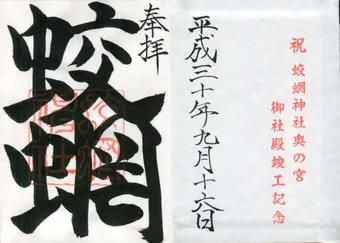 祝 蛟蝄神社奥の宮
御社殿竣工記念
平成三十年九月十六日
奉拝
蛟蝄